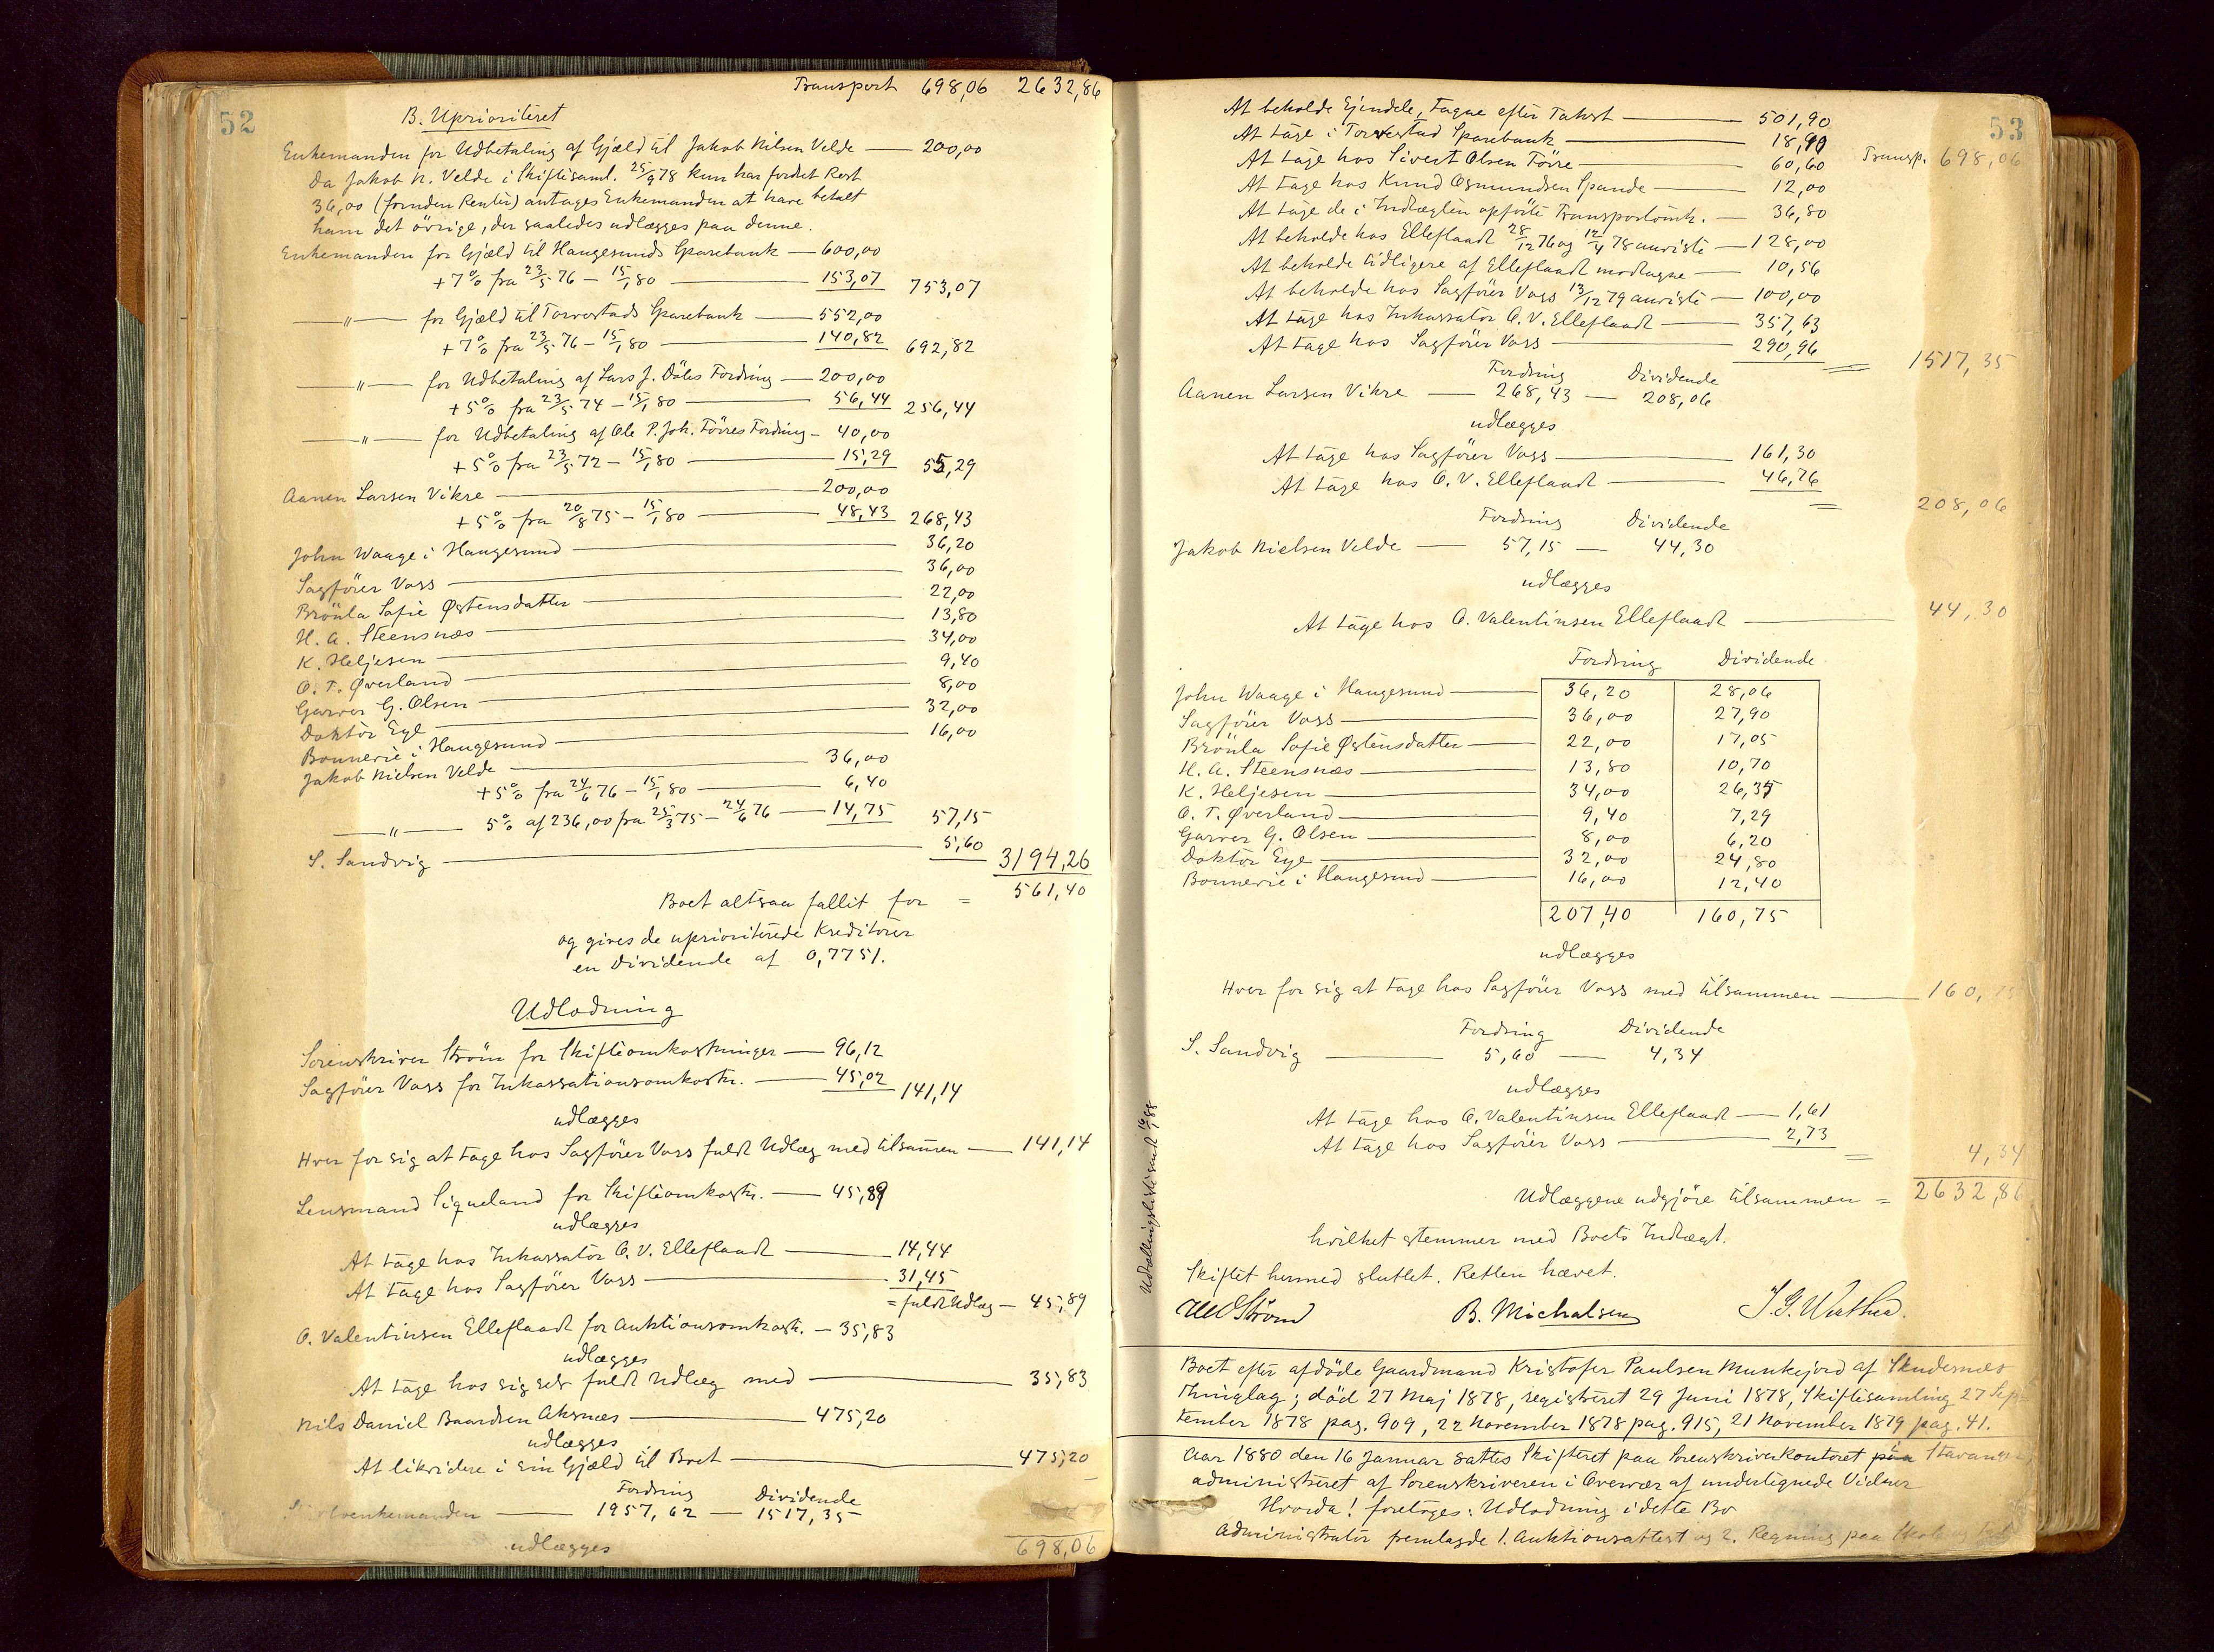 52
Transport 698,06 2632,86
B. Uprioriteret
Enkemanden for Udbetaling af Gjæld til Jakob Nilsen Velde — 200,00
Da Jakob N. Velde i Skiftesaml. 25/9 78 kun har fordret Rest
36,00 (foruden Renter) antages Enkemanden at have betalt
ham det övrige, der saaledes udlægges paa denne.
Enkemanden for Gjæld til Haugesunds Sparebank — 600,00
+ 7% fra 23/5 76 – 15/1 80 — 153,07 753,07
—„— for Gjæld til Torvestads Sparebank — 552,00
+ 7% fra 23/5 76 – 15/1 80 — 140,82 692,82
—„— for Udbetaling af Lars J. Döles Fordring — 200,00
+ 5% fra 23/5 74 – 15/1 80 — 56,44 256,44
—„— for Udbetaling af Ole P. Joh. Förres Fordring – 40,00
+ 5% fra 23/5 72 – 15/1 80 — 15,29 55,29
Aanen Larsen Vikre — 200,00
+ 5% fra 20/8 75 – 15/1 80 — 48,43 268,43
John Waage i Haugesund — 36,20
Sagförer Vass — 36,00
Brönla Sofie Østensdatter — 22,00
H. A. Steensnæs — 13,80
K. Heljesen — 34,00
O. T. Øverland — 9,40
Garver G. Olsen — 8,00
Doktor Eye — 32,00
Bonnevie i Haugesund — 16,00
Jakob Nielsen Velde — 36,00
+ 5% fra 24/6 76 – 15/1 80 — 6,40
—„— 5% af 236,00 fra 25/3 75 – 24/6 76 — 14,75 57,15
S. Sandvig — 5,60 3194,26
Boet altsaa fallit for = 561,40
og gives de uprioriterede Kreditorer
en Dividende af 0,7751.
Udlodning
Sorenskriver Ström for Skifteomkostninger — 96,12
Sagförer Vass for Inkassationsomkostn. — 45,02 141,14
udlægges
Hver for sig at tage hos Sagförer Vass fuldt Udlæg med tilsammen — 141,14
Lensmand Siqueland for Skifteomkostn. — 45,89
udlægges
At tage hos Inkassator O. V. Elleflaadt — 14,44
At tage hos Sagförer Vass — 31,45
= fuldt Udlæg — 45,89
O. Valentinsen Elleflaadt for Auktionsomkostn. — 35,83
udlægges
At tage hos sig selv fuldt Udlæg med — 35,83
Nils Daniel Baardsen Aksnæs — 475,20
udlægges
At likvidere i sin Gjæld til Boet — 475,20
Fordring Dividende
enkemanden — 1957,62 — 1517,35
udlægges 698,06
53
At beholde Ejendele, tagne efter Takst — 501,90
At tage i Torvestad Sparebank — 18,90
Transp. 698,06
At tage hos Sivert Olsen Förre — 60,60
At tage hos Knud Osmundsen Spande — 12,00
At tage de i Indtægten opförte Transportomk. — 36,80
At beholde hos Elleflaadt 28/12 76 og 12/4 78 anviste — 128,00
At beholde tidligere af Elleflaadt modtagne — 10,56
At beholde hos Sagförer Vass 13/12 79 anviste — 100,00
At tage hos Inkassator O. V. Elleflaadt — 357,63
At tage hos Sagförer Vass — 290,96
= 1517,35
Fordring Dividende
Aanen Larsen Vikre — 268,43 — 208,06
udlægges
At tage hos Sagförer Vass — 161,30
At tage hos O. V. Elleflaadt — 46,76
= 208,06
Fordring Dividende
Jakob Nielsen Velde — 57,15 — 44,30
udlægges
At tage hos O. Valentinsen Elleflaadt — 44,30
Fordring Dividende
John Waage i Haugesund — 36,20 28,06
Sagförer Vass — 36,00 27,90
Brönla Sofie Østensdatter — 22,00 17,05
H. A. Steensnæs — 13,80 10,70
K. Heljesen — 34,00 26,35
O. T. Øverland — 9,40 7,29
Garver G. Olsen — 8,00 6,20
Doktor Eye — 32,00 24,80
Bonnevie i Haugesund — 16,00 12,40
207,40 160,75
udlægges
Hver for sig at tage hos Sagförer Vass med tilsammen — 160,75
Fordring Dividende
S. Sandvig — 5,60 — 4,34
udlægges
At tage hos O. Valentinsen Elleflaadt — 1,61
At tage hos Sagförer Vass — 2,73
= 4,34
Udlæggene udgjöre tilsammen = 2632,86
hvilket stemmer med Boets Indtægt.
Skiftet hermed sluttet. Retten hævet.
Ström B. Michalsen
Boet efter afdöde Gaardmand Kristofer Paulsen Munkejord af Skudesnes
Thinglag; död 27 Maj 1878, registreret 29 Juni 1878, Skiftesamling 27 Sep-
tember 1878 pag. 909, 22 November 1878 pag. 915, 21 November 1879 pag. 41.
Aar 1880 den 16 Januar sattes Skifteret paa Sorenskriverkontoret paa Stavanger,
administreret af Sorenskriveren i Overvær af undertegnede Vidner
Hvorda! foretoges: Udlodning i dette Bo
Administrator fremlagde 1. Auktionsattest og 2. Regning paa